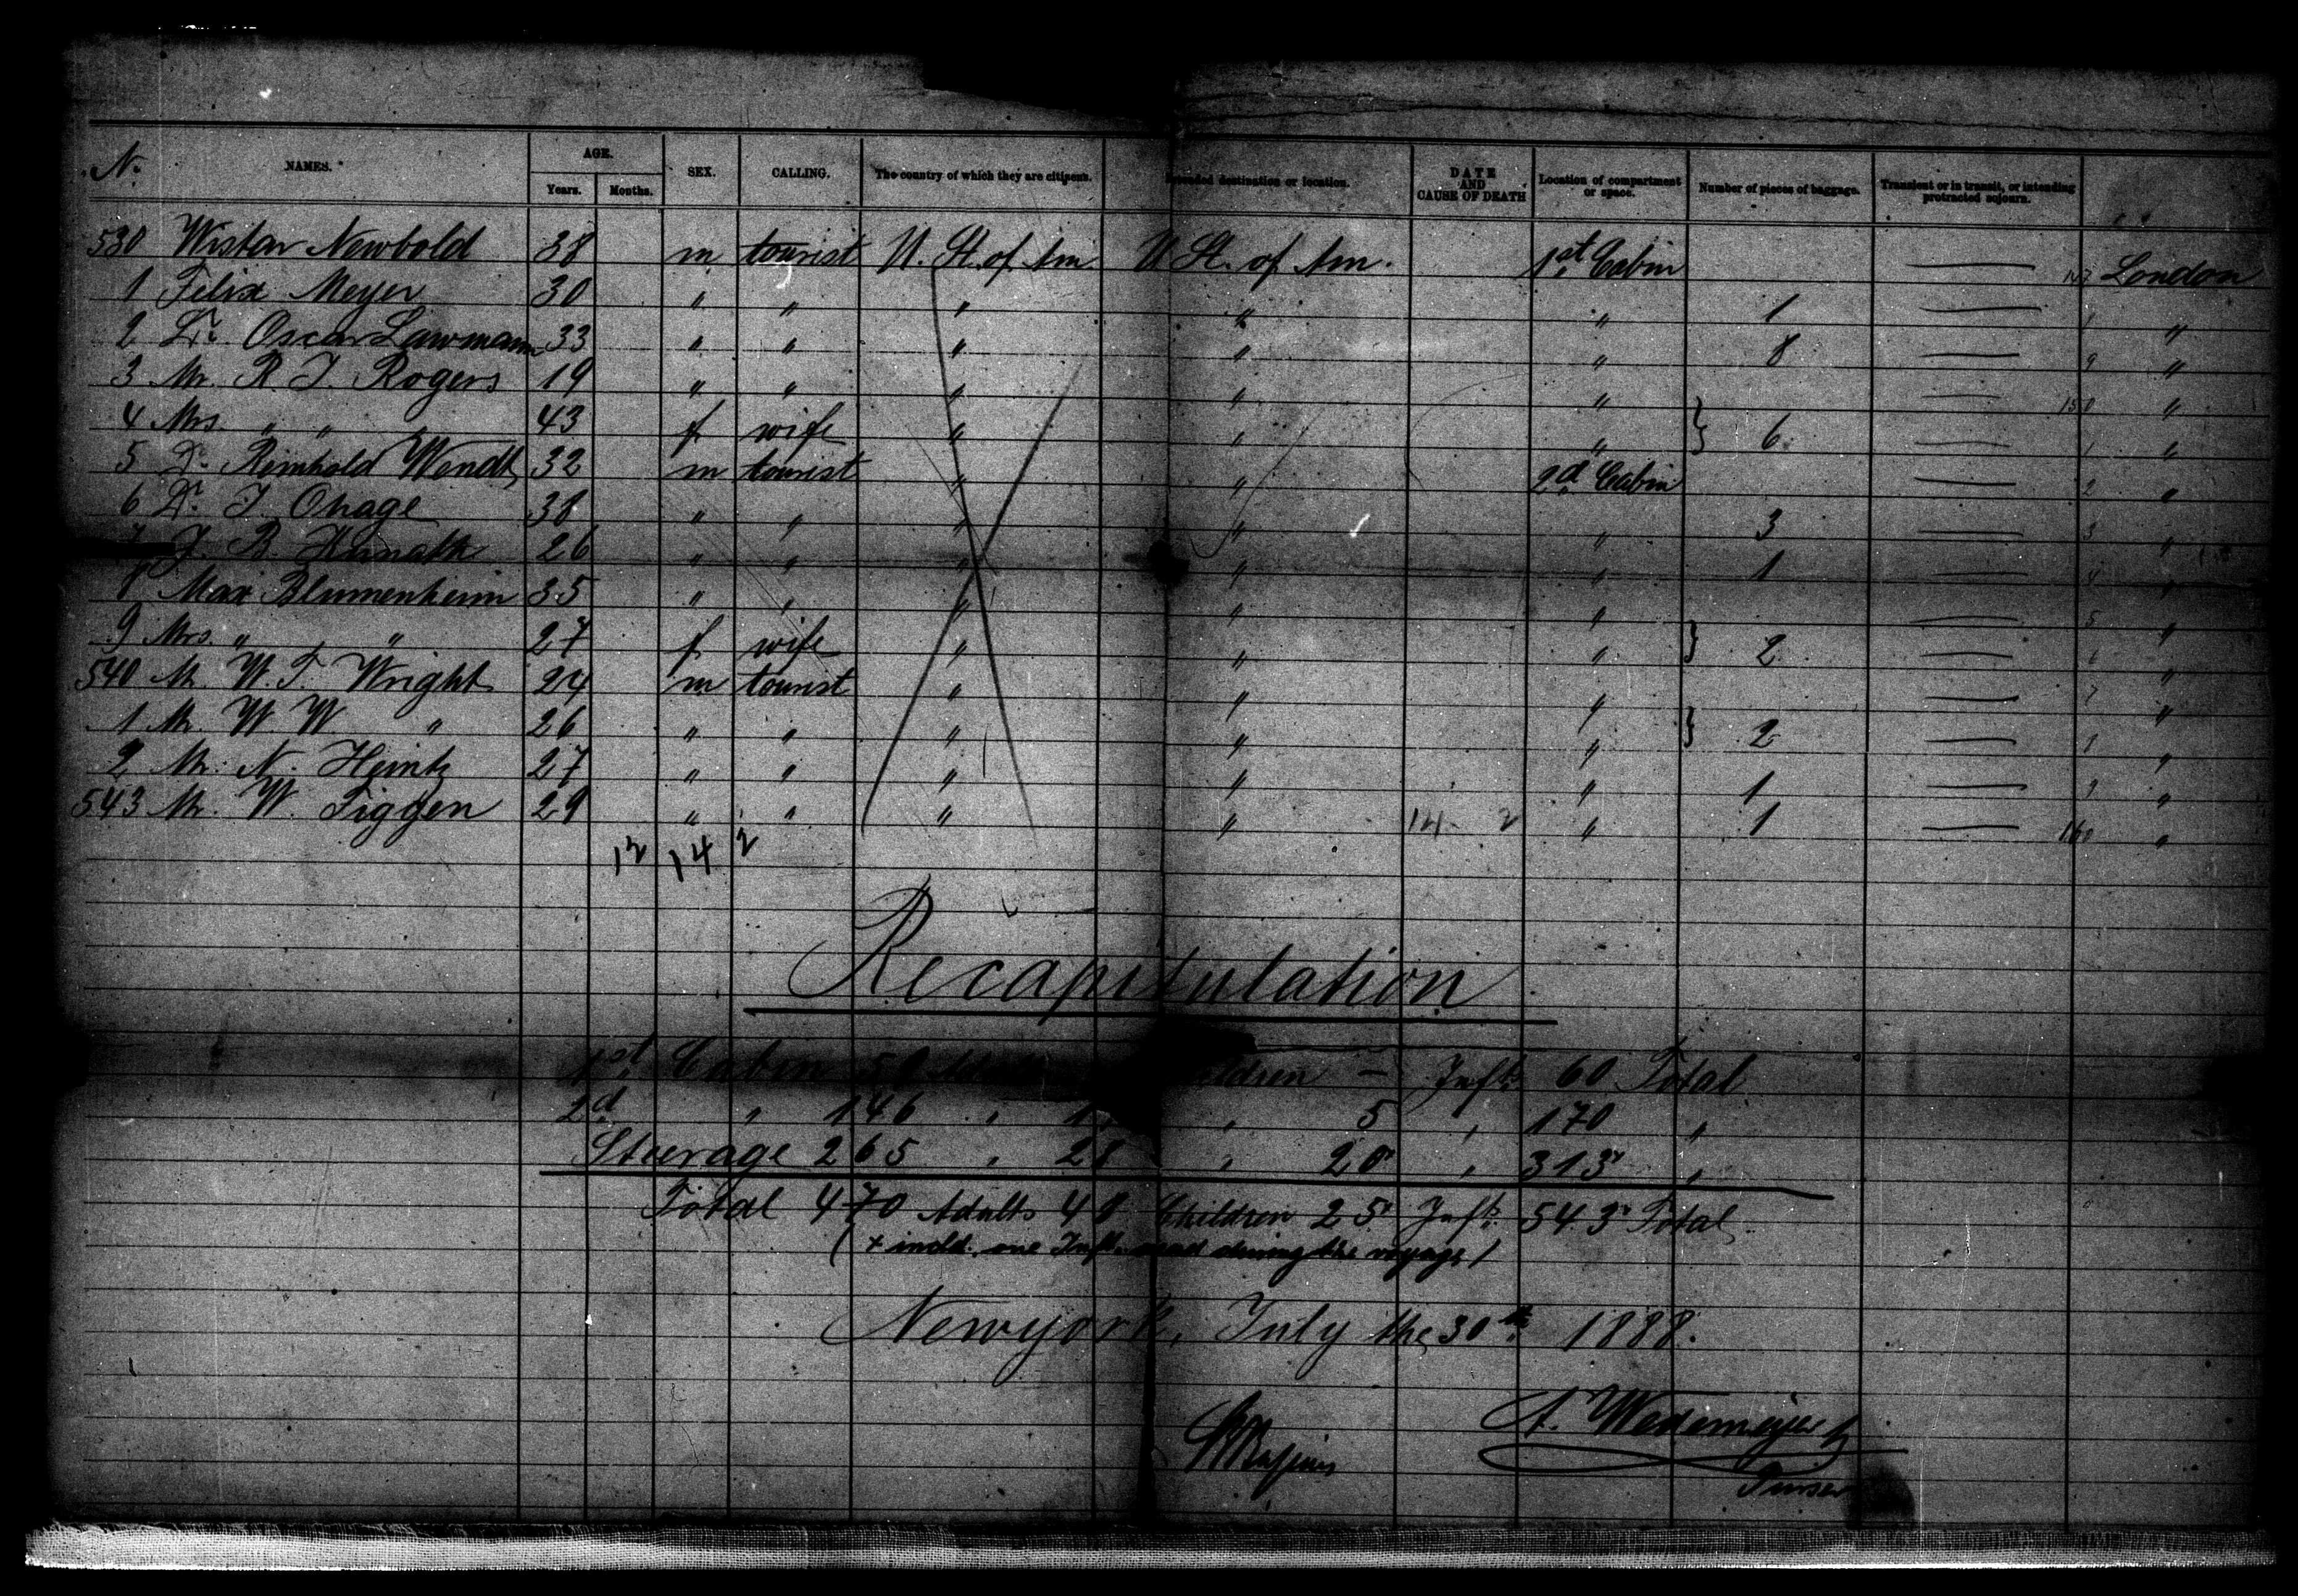 N.º NAMES. AGE. Years. Months. SEX. CALLING. The country of which they are citizens. Intended destination or location. DATE AND CAUSE OF DEATH Location of compartment or space. Number of pieces of baggage. Transient or in transit, or intending protracted sojourn.
530 Wistar Newbold 38 m tourist U. St. of Am. U St. of Am. 1st Cabin — London
1 Felix Meyer 30 " " " " " 1 — "
2 Dr. Oscar Lawmann 33 " " " " " 8 — 9 "
3 Mr. R. J. Rogers 19 " " " " " — 150 "
4 Mrs. " " 43 f wife " " " } 6 — 1 "
5 Dr. Reinhold Wendt 32 m tourist " " 2d Cabin — 2 "
6 Dr. J. Ohage 38 " " " " " 3 — 3 "
7 J. B. 26 " " " " " 1 — 4 "
8 Max Blumenheim 35 " " " " " — 5 "
9 Mrs. " " 27 f wife " " " } 2 — 6 "
540 Mr. W. T. Wright 24 m tourist " " " — 7 "
1 Mr. W. W. " 26 " " " " " } 2 — "
2 Mr. N. Heintz 27 " " " " " 1 — 9 "
543 Mr. W. Figgen 29 " " " " 14 2 " 1 — 160 "
12 14 2
Recapitulation
1st Cabin 59 Adults Children — Inft. 60 Total
2d " 146 " " 5 " 170 "
Steerage 265 " 28 " 20 " 313 "
Total 470 Adults 48 Children 25 Inft. 543 Total
(+ incld. one Inft. dead during the voyage)
Newyork, July the 30th 1888.
A. Wedemeyer
Purser